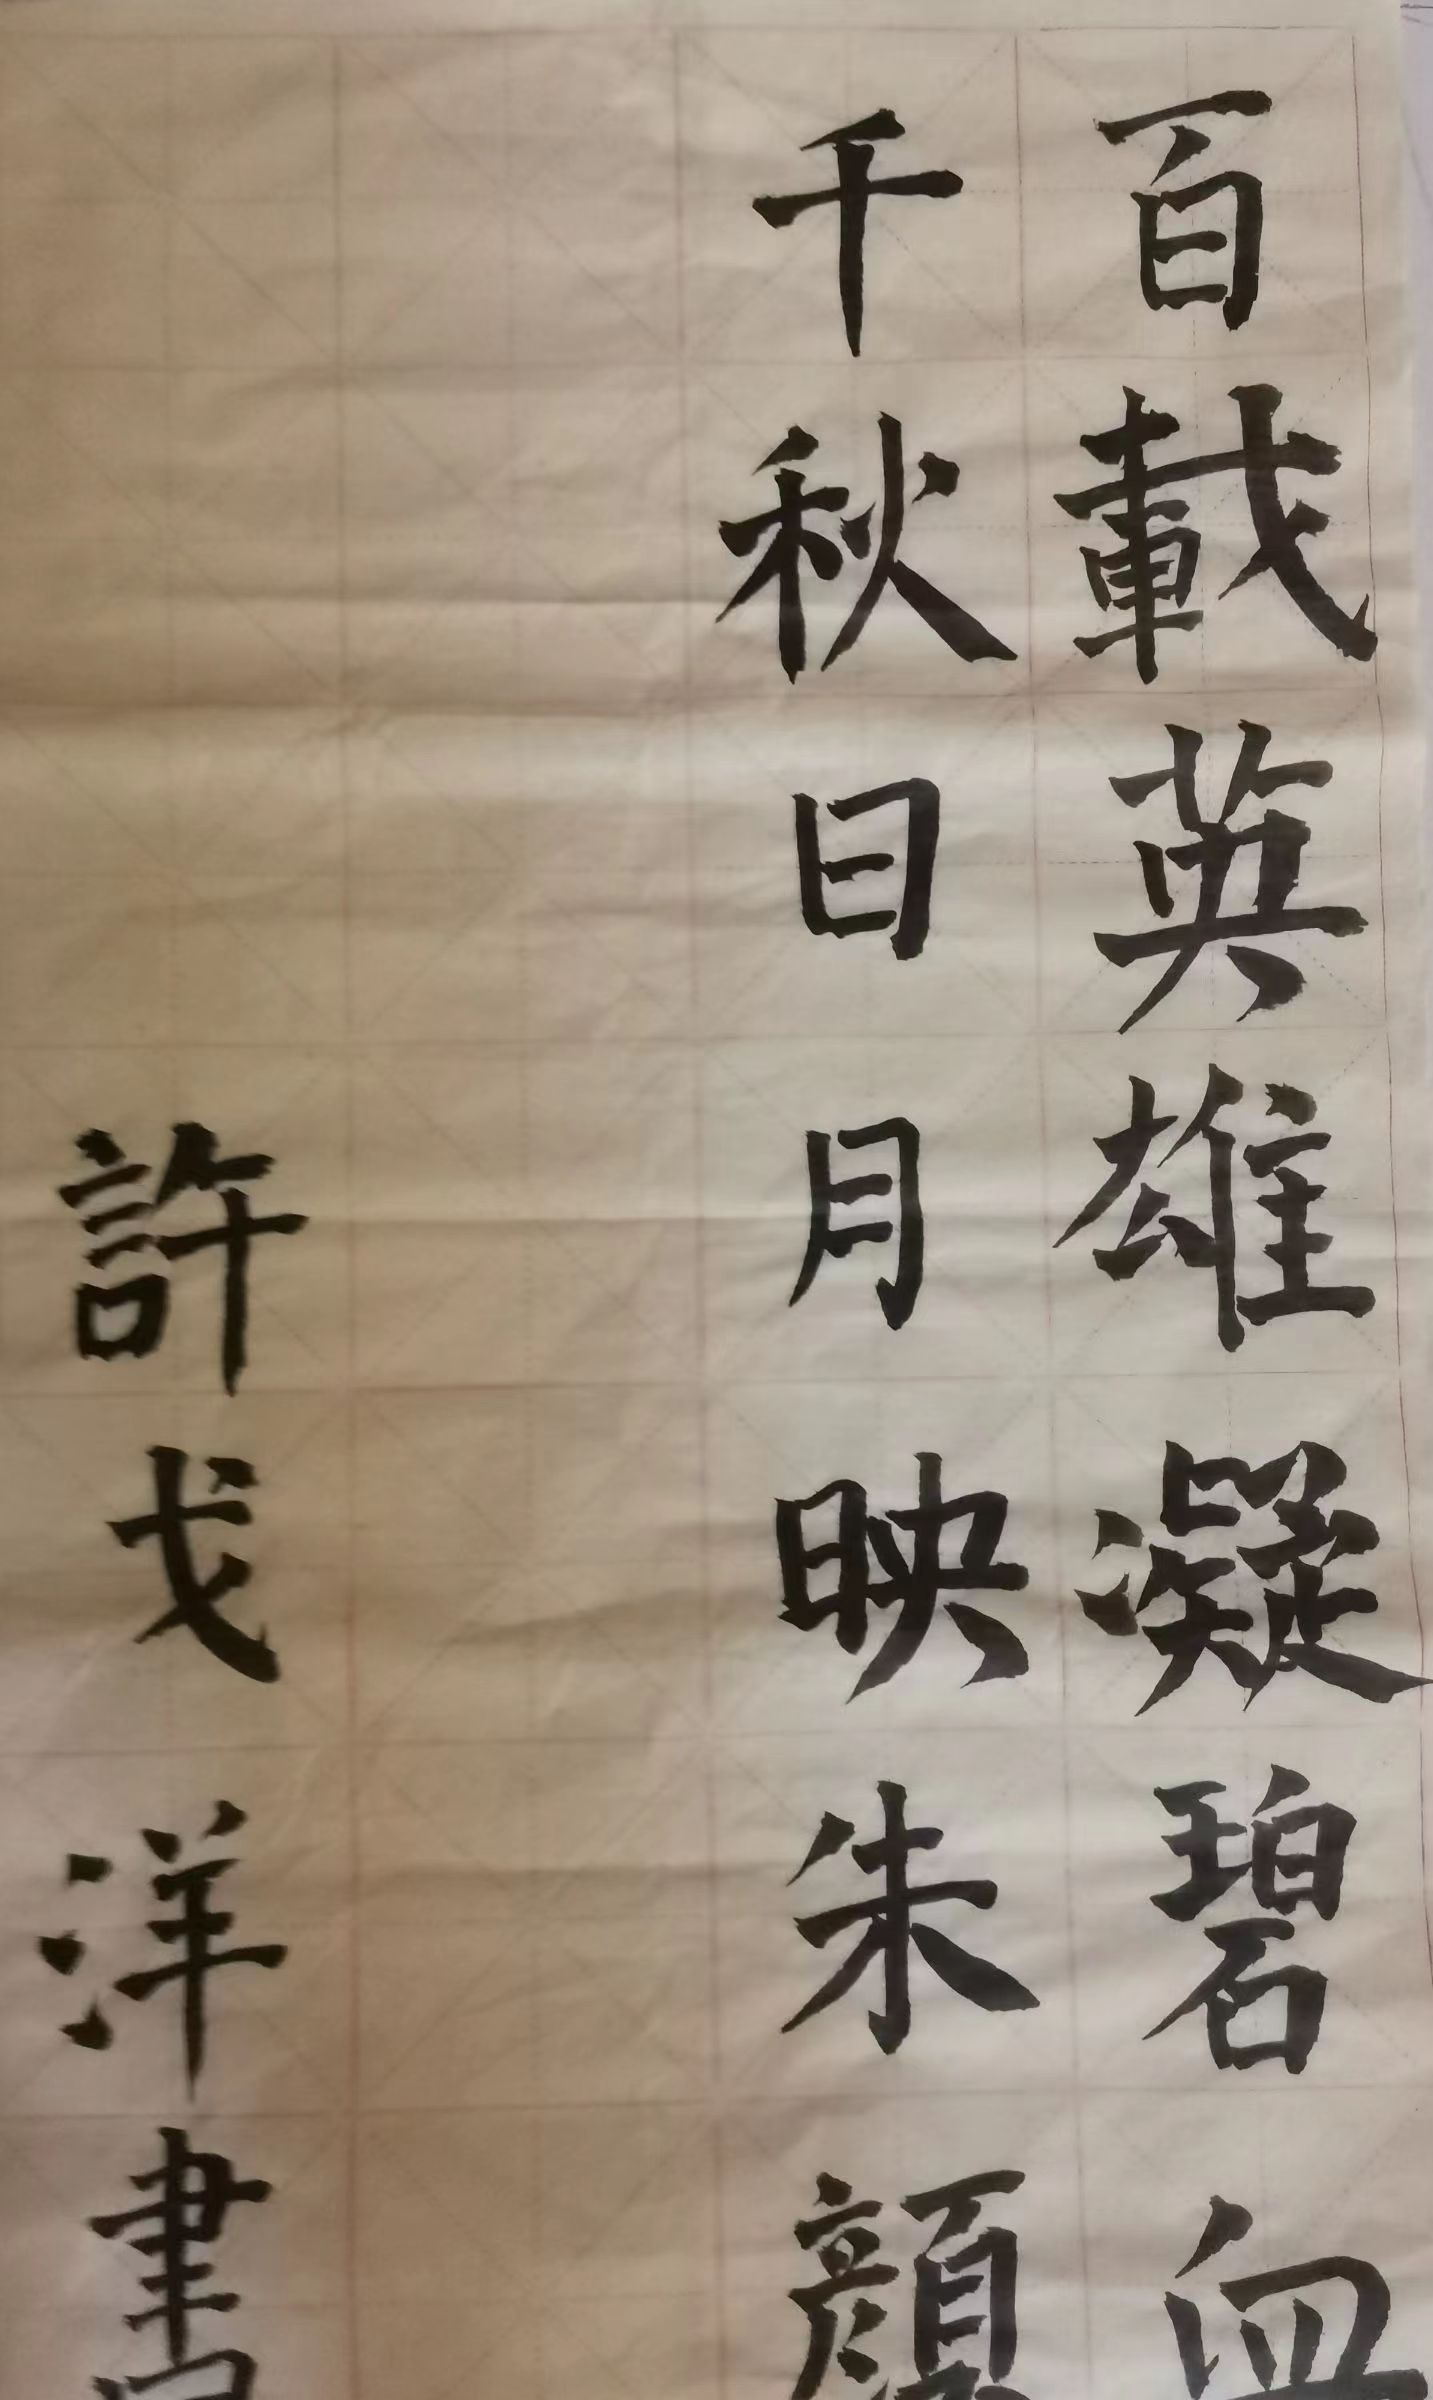 百載英雄凝碧血
千秋日月映朱顏
許戈洋書